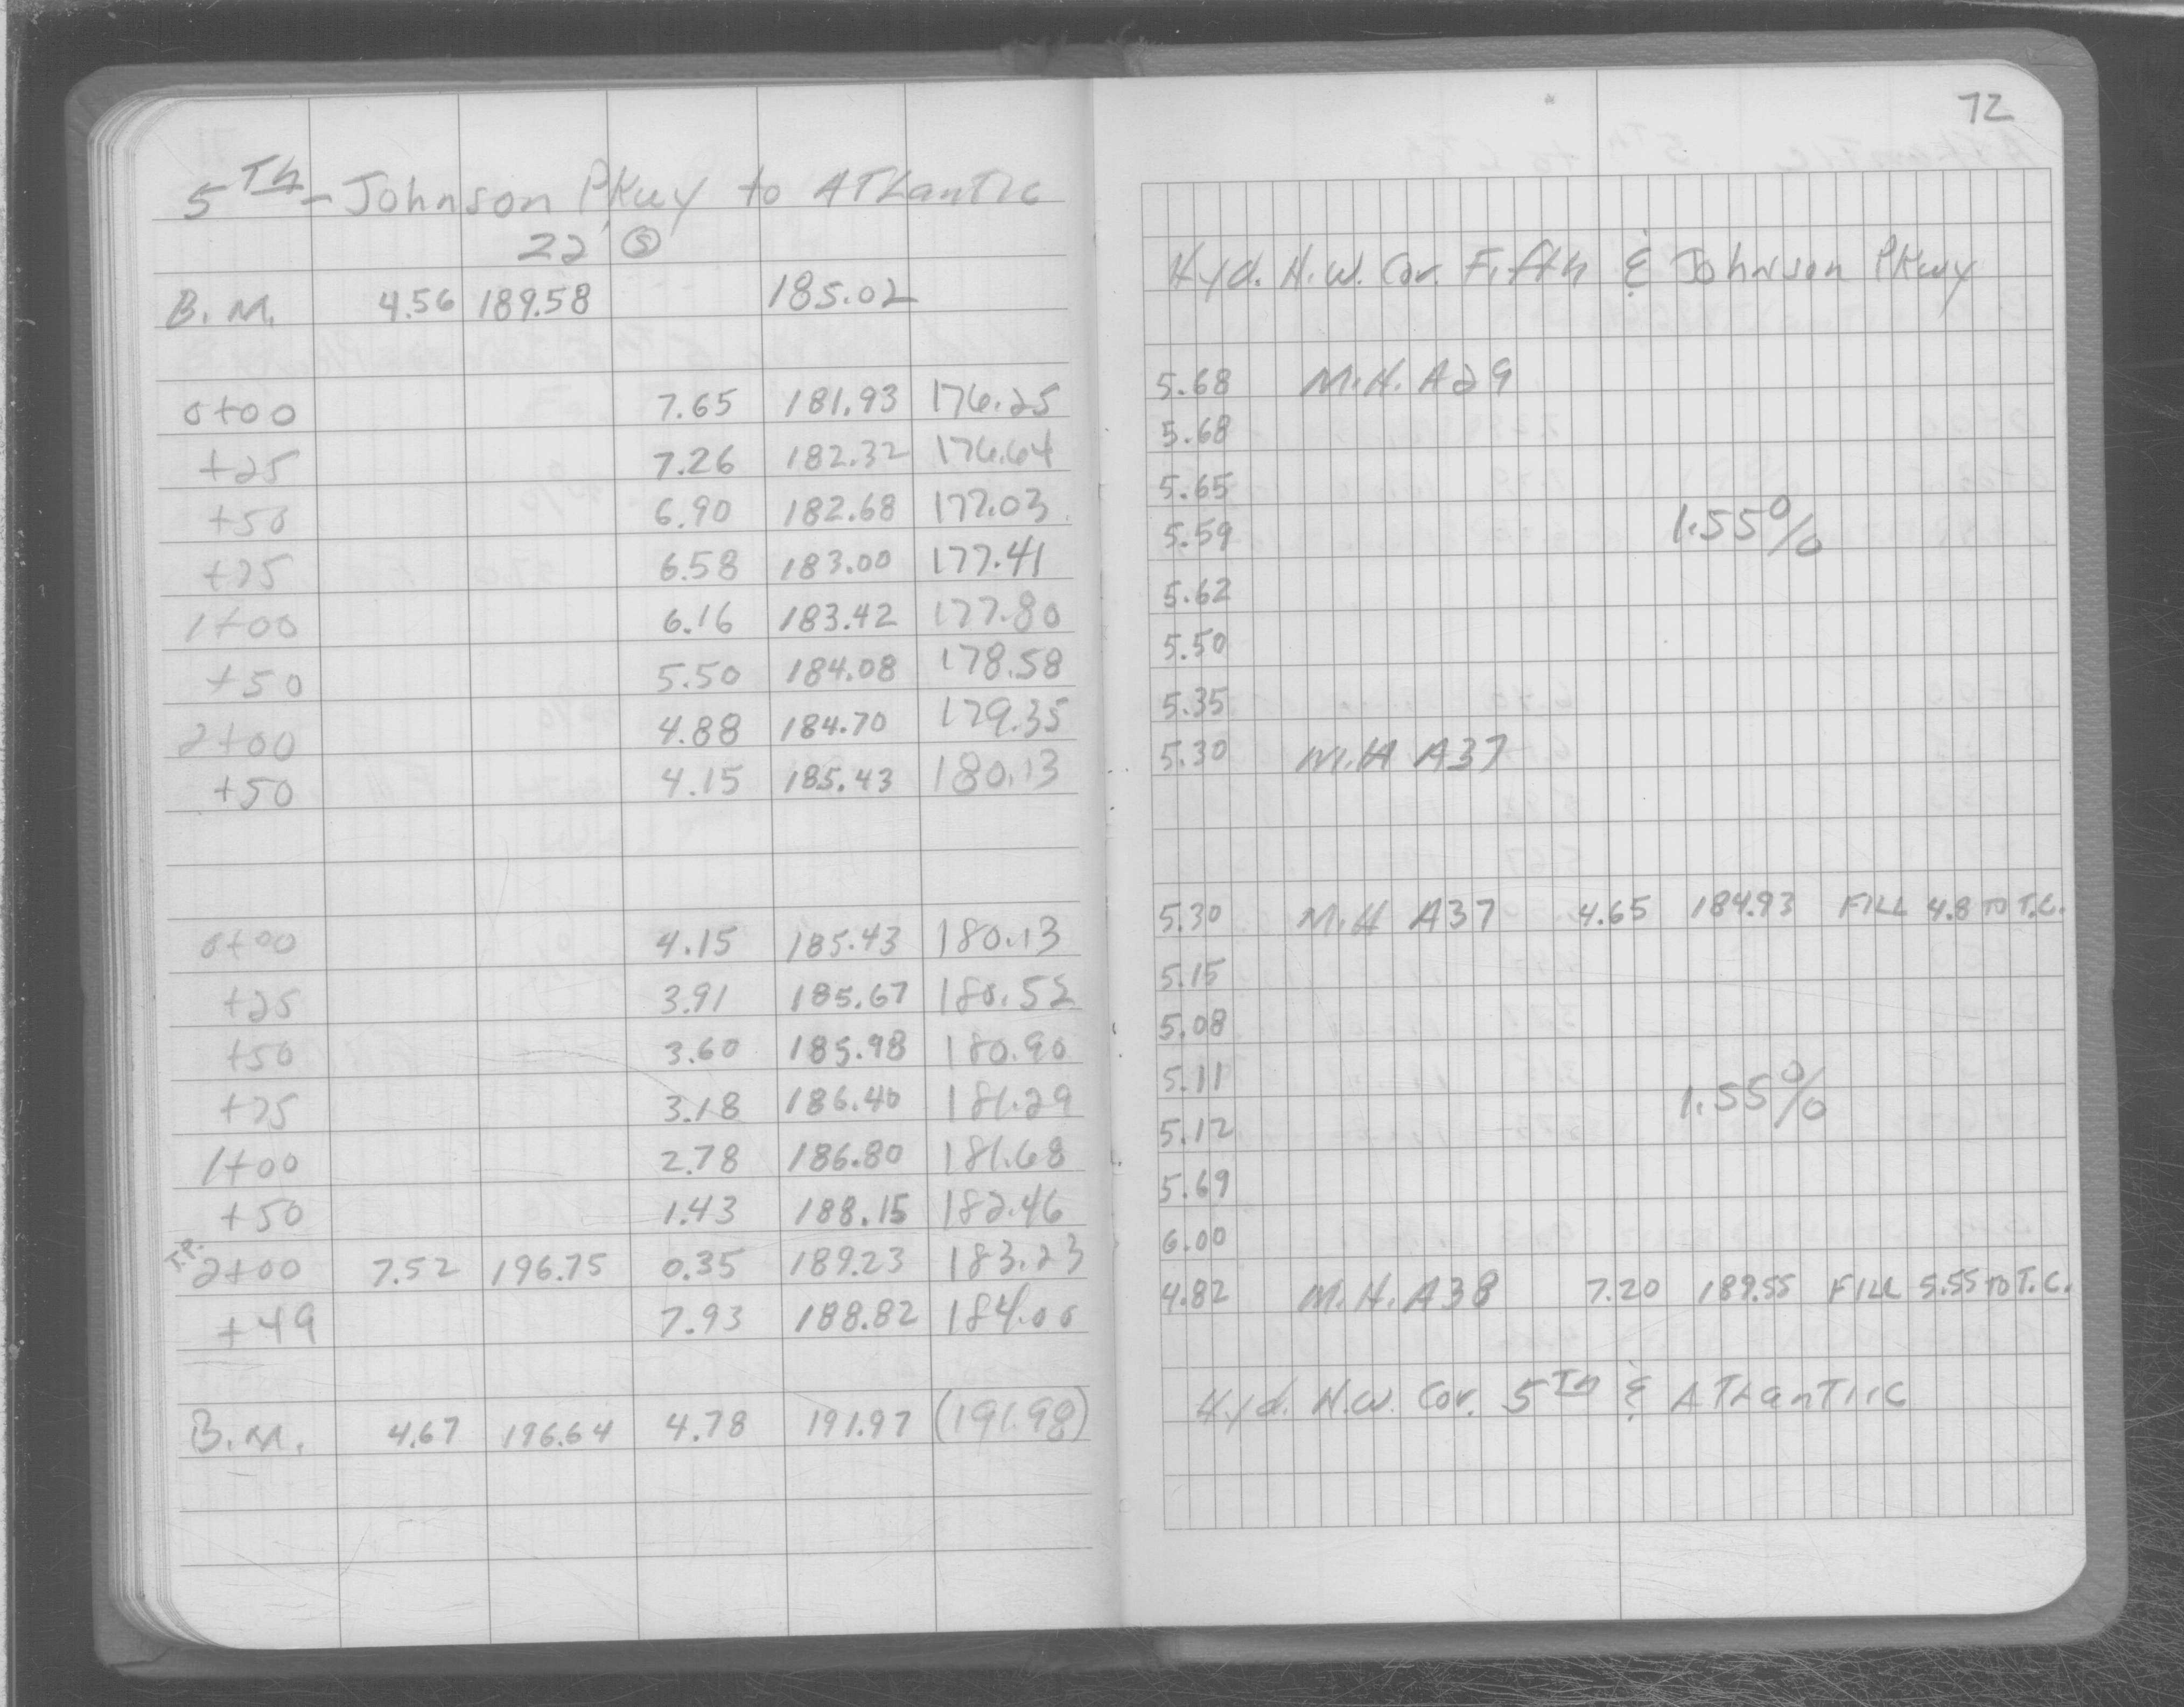 72
5Th - Johnson Pkwy to ATLantic
22' Ⓢ
B.M. 4.56 189.58 185.02 Hyd. N.W. Cor. Fifth & Johnson Pkwy
0+00 7.65 181.93 176.25 5.68 M.H. A29
+25 7.26 182.32 176.64 5.68
+50 6.90 182.68 177.03 5.65
+75 6.58 183.00 177.41 5.59 1.55%
1+00 6.16 183.42 177.80 5.62
+50 5.50 184.08 178.58 5.50
2+00 4.88 184.70 179.35 5.35
+50 4.15 185.43 180.13 5.30 M.H A37
0+00 4.15 185.43 180.13 5.30 M.H A37 4.65 184.93 FILL 4.8 TO T.C.
+25 3.91 185.67 180.52 5.15
+50 3.60 185.98 180.90 5.08
+75 3.18 186.40 181.29 5.11 1.55%
1+00 2.78 186.80 181.68 5.12
+50 1.43 188.15 182.46 5.69
T.P. 2+00 7.52 196.75 0.35 189.23 183.23 6.00
+49 7.93 188.82 184.00 4.82 M.H. A38 7.20 189.55 FILL 5.55 TO T.C.
B.M. 4.67 196.64 4.78 191.97 (191.98) Hyd. N.W. Cor. 5Th & ATLanTiic